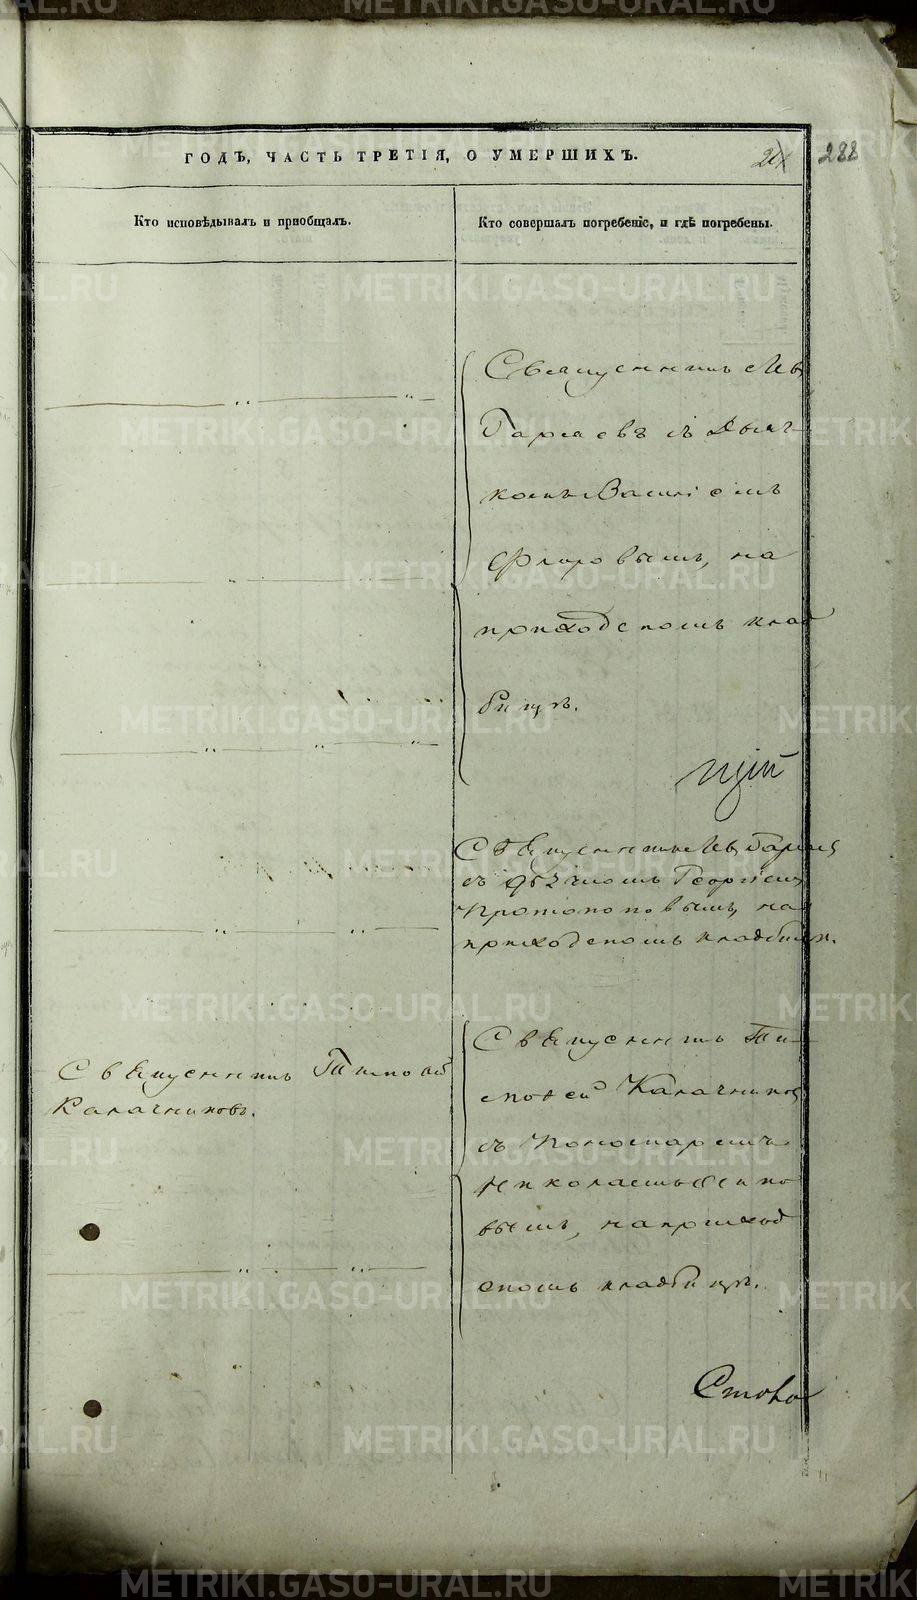 ГОДЪ, ЧАСТЬ ТРЕТІЯ, О УМЕРШИХЪ.
288
Кто исповѣдывалъ и пріобщалъ.
Кто совершалъ погребеніе, и гдѣ погребены.
Священникъ
съ Дьяч-
комъ Василіемъ
Флоровымъ, на
приходскомъ клад
бищѣ.
Священникъ
съ Георгіем
Протопоповымъ, на
приходскомъ кладбищѣ.
Священникъ Тимофей
Калачниковъ.
Священникъ Ти-
мофей Калачников
съ Пономаремъ
Николаемъ
вымъ, на приход
скомъ кладбищѣ.
METRIKI.GASO-URAL.RU